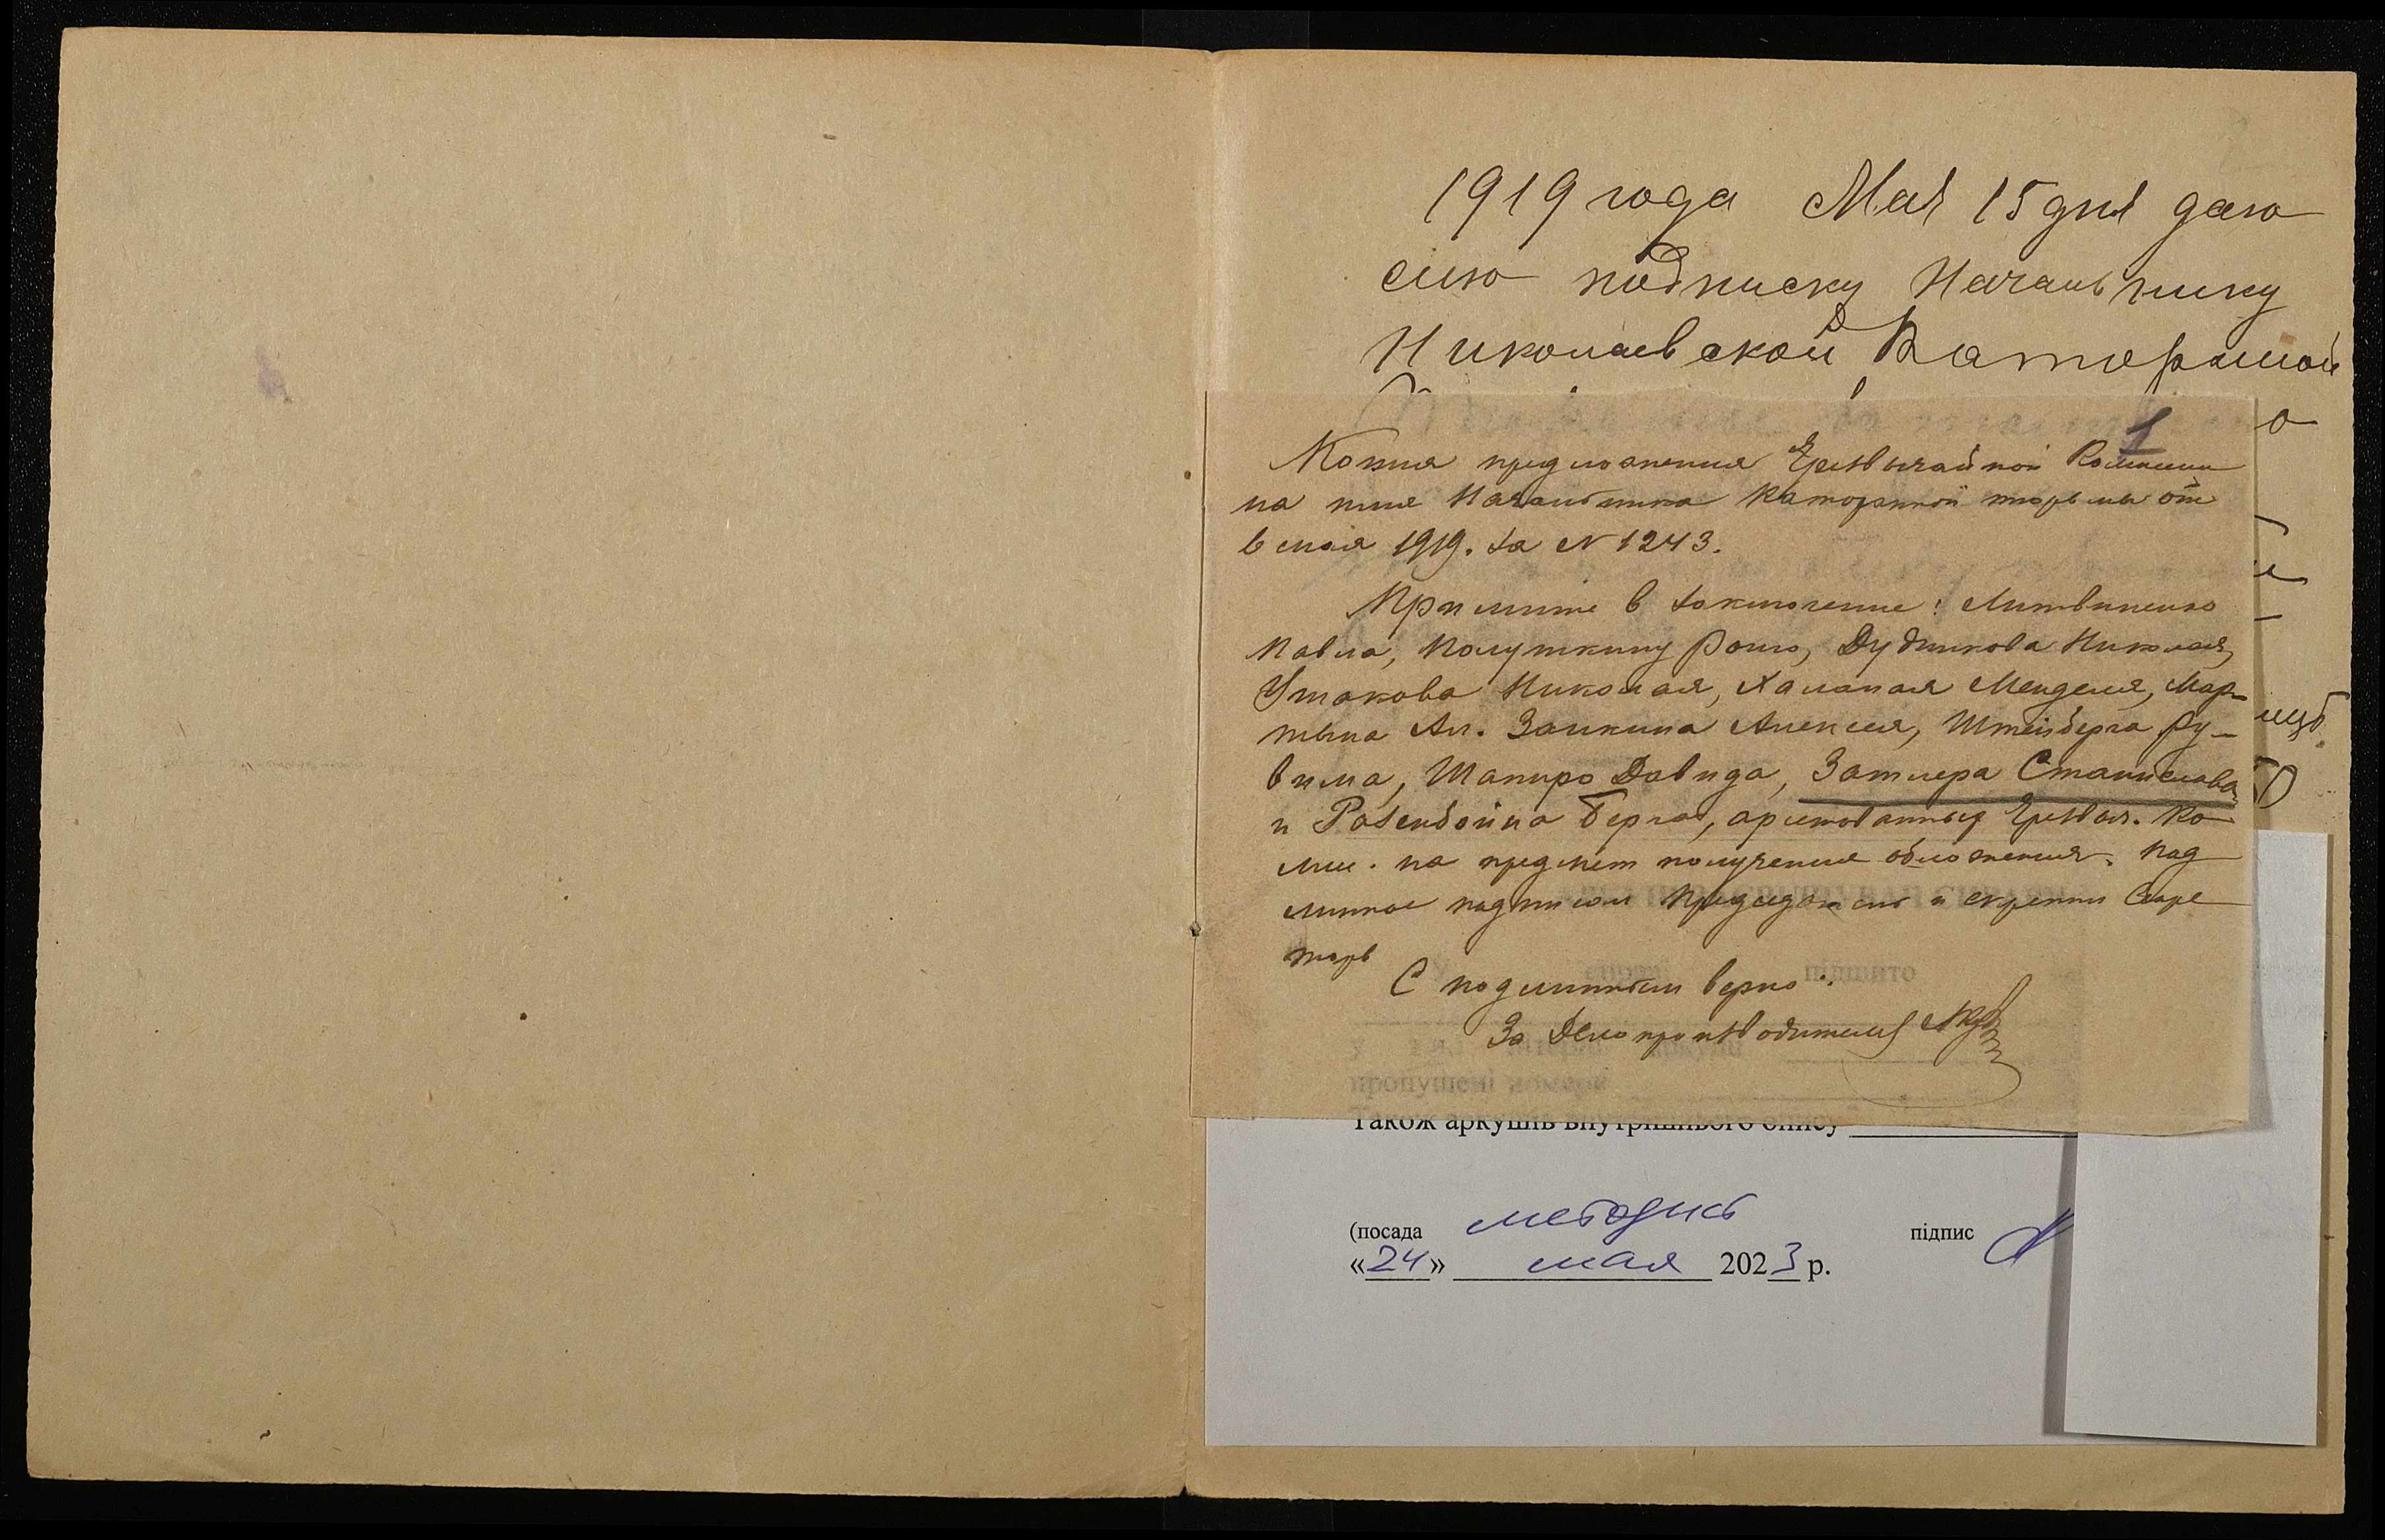 1919 года Мая 15 дня даю
сию подписку Начальнику
Николаевской Каторжной
о
1
Копия предложения Чрезвычайной Комиссии
на имя Начальника Каторжной тюрьмы от
6 мая 1919. за N 1243.
Примите в заключение: Литвиненко
Павла, Полушкину Розу, Дудникова Николая,
Ушакова Николая, Халапая Менделя, Мар-
тына Ал. Заикина Алексея, Штейнберга Ру-
вима, Шапиро Давида, Затлера Станислава
и Розенбойма Берка, арестованных Чрезвыч. Ко
мис. на предмет получения обложения. Под
линное подписал Председатель и скрепил Секре
тарь
С подлинным верно:
За Делопроизводителя
підшито
пропущені номери
Також аркушів внутрішнього опису
(посада методист підпис
«24» мая 2023 р.